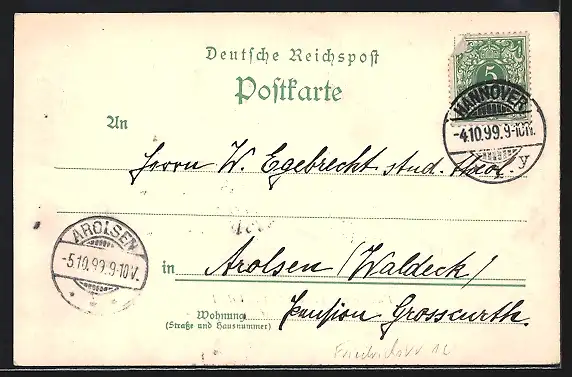 Deutsche Reichspost
Postkarte
5
HANNOVER
-4.10.99.9-10N.
y
An
Herrn W. Egebrecht stud. theol.
AROLSEN
-5.10.99.9-10V.
in Arolsen (Waldeck)
Wohnung Pension Grosscurth.
(Straße und Hausnummer)